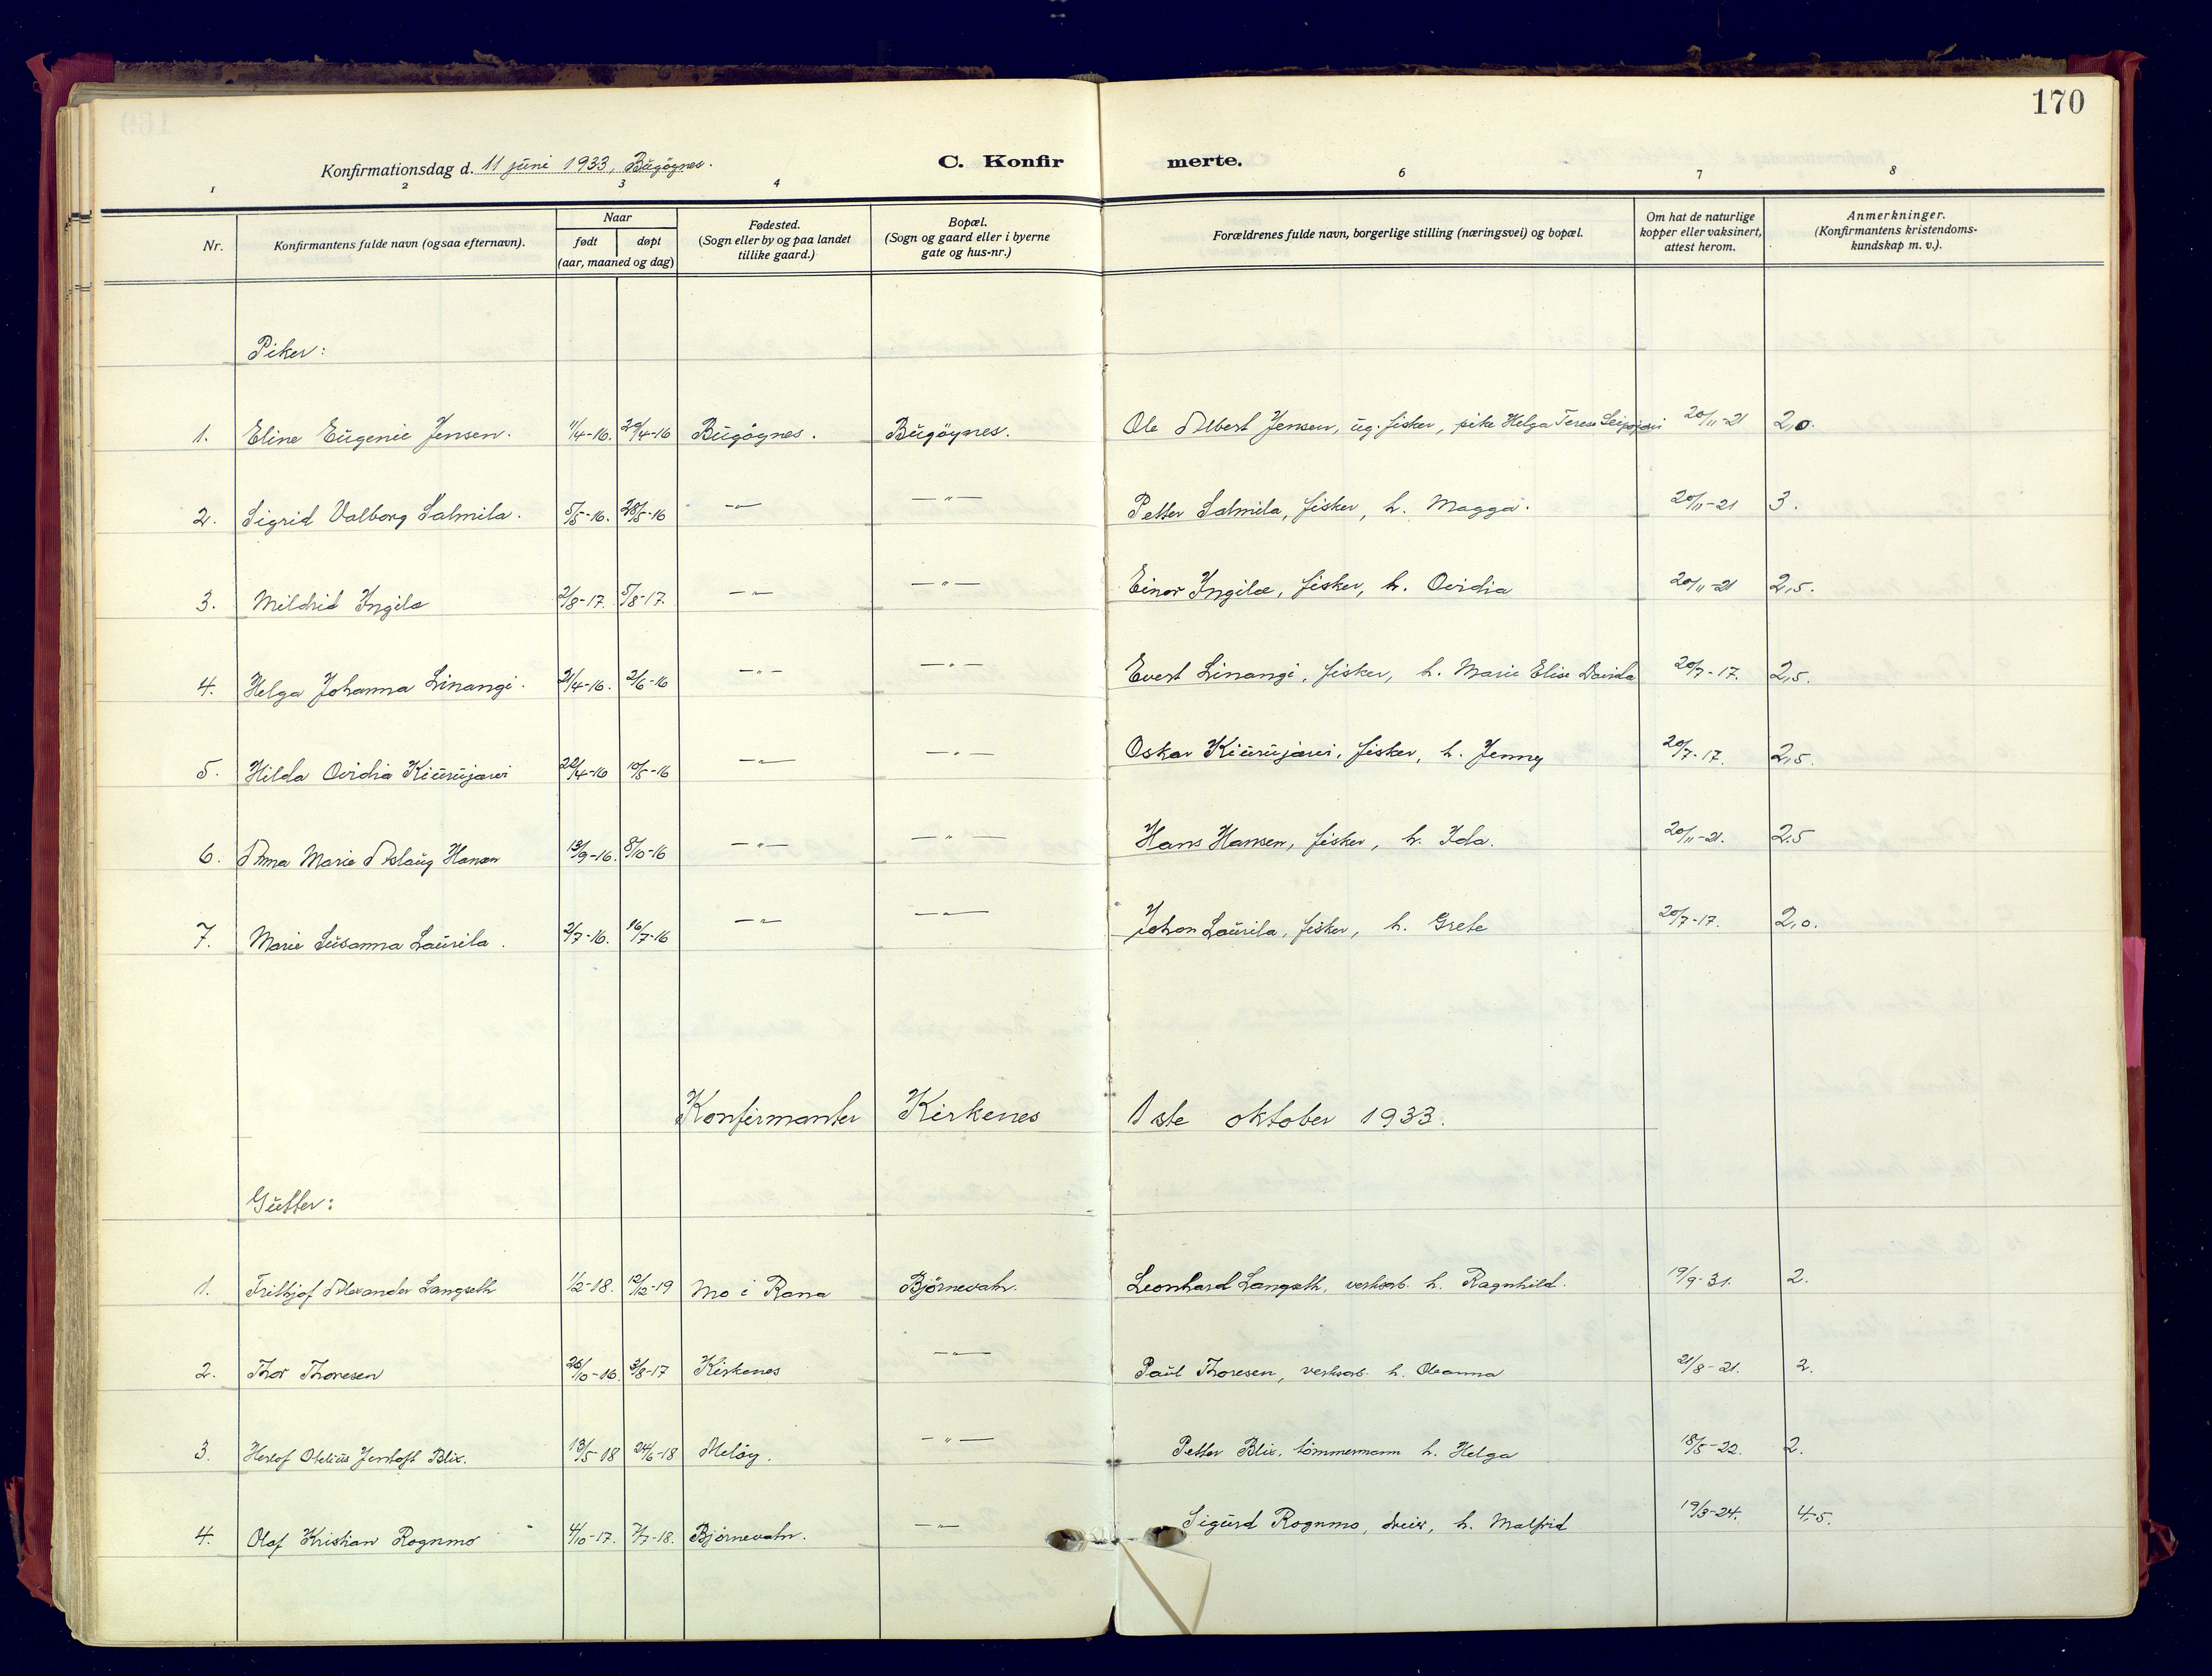 170
Konfirmationsdag d. 11 juni 1933, Bugøynes.
C. Konfirmerte.
1 2 3 4 6 7 8
Nr. | Konfirmantens fulde navn (ogsaa efternavn). | Naar født døpt (aar, maaned og dag) | Fødested. (Sogn eller by og paa landet tillike gaard.) | Bopæl. (Sogn og gaard eller i byerne gate og hus-nr.) | Forældrenes fulde navn, borgerlige stilling (næringsvei) og bopæl. | Om hat de naturlige kopper eller vaksinert, attest herom. | Anmerkninger. (Konfirmantens kristendoms-kundskap m. v.).
Piker:
1. Eline Eugenie Jensen. 11/4-16. 24/4-16 Bugøynes. Bugøynes. Ole Albert Jensen, ug. fisker, pike Helga Terese 20/11-21 2,0.
2. Sigrid Valborg Salmila. 5/5-16. 28/5-16 —„— —„— Petter Salmila, fisker, h. Magga. 20/11-21 3.
3. Mildrid Ingilæ 2/8-17. 5/8-17. —„— —„— Einar Ingilæ, fisker, h. Ovidia 20/11-21 2,5.
4. Helga Johanna Linangi. 21/4-16. 2/6-16 —„— —„— Evert Linangi, fisker, h. Marie Elise Davida 20/7-17. 2,5.
5. Hilda Ovidia Kiurujærvi 20/4-16 10/5-16 —„— —„— Oskar Kiurujærvi, fisker, h. Jenny 20/7-17. 2,5.
6. Anna Marie Aslaug Hansen 13/9-16. 8/10-16 —„— —„— Hans Hansen, fisker, h. Ida. 20/11-21. 2,5
7. Marie Susanna Laurila. 2/7-16. 16/7-16 —„— —„— Johan Laurila, fisker, h. Grete 20/7-17. 2,0.
Konfirmanter Kirkenes 1ste oktober 1933.
Gutter:
1. Frithjof Alexander Langseth 1/2-18. 12/12-19 Mo i Rana Bjørnevatn. Leonhard Langseth, verksarb. h. Ragnhild. 19/9-31. 2.
2. Thor Thoresen 26/10-16. 3/8-17 Kirkenes —„— Paul Thoresen, verksarb. h. Oleanna 21/8-21. 2.
3. Herlof Otelius Jentoft Blix. 13/5-18 24/6-18 Meløy. —„— Petter Blix, tømmermann h. Helga 18/5-22. 2.
4. Olaf Kristian Rognmo 4/10-17. 7/7-18. Bjørnevatn. —„— Sigurd Rognmo, dreier, h. Malfrid 19/3-24. 4,5.